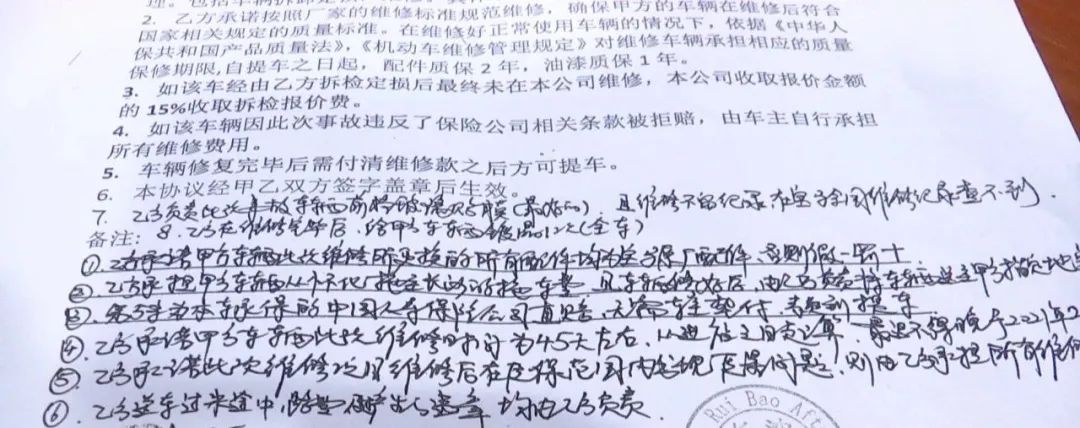 2. 乙方承诺按照厂家的维修标准规范维修，确保甲方的车辆在维修后符合
国家相关规定的质量标准。在维修好正常使用车辆的情况下，依据《中华人
保共和国产品质量法》，《机动车维修管理规定》对维修车辆承担相应的质量
保修期限，自提车之日起，配件质保 2 年，油漆质保 1 年。
3. 如该车经由乙方拆检定损后最终未在本公司维修，本公司收取报价金额
的 15%收取拆检报价费。
4. 如该车辆因此次事故违反了保险公司相关条款被拒赔，由车主自行承担
所有维修费用。
5. 车辆修复完毕后需付清维修款之后方可提车。
6. 本协议经甲乙双方签字盖章后生效。
7. 乙方负责此次事故车辆前挡玻璃及膜（最好的） 且维修不留纪录 在全国维修纪录查不到.
备注: 8. 乙方在维修完毕后，给甲方车辆镀晶1次（全车）
① 乙方承诺甲方车辆此次维修所更换的所有配件均为原厂配件，否则假一罚十
② 乙方承担甲方车辆从 拖至 的拖车费 且车辆修好后，由乙方负责将车辆送至甲方指定地点
③ 承保的中国人寿保险公司直赔，无需车主垫付，来 提车
④ 乙方承诺甲方车辆此次维修时间为45天左右，从进店之日起算，最迟不得晚于2021年2
⑤ 乙方承诺此次维修以及维修后在质保范围内出现质量问题，则由乙方承担所有维修
⑥ 乙方送车过来途中，路 产生 均由乙方负责.
Rui Bao Aft